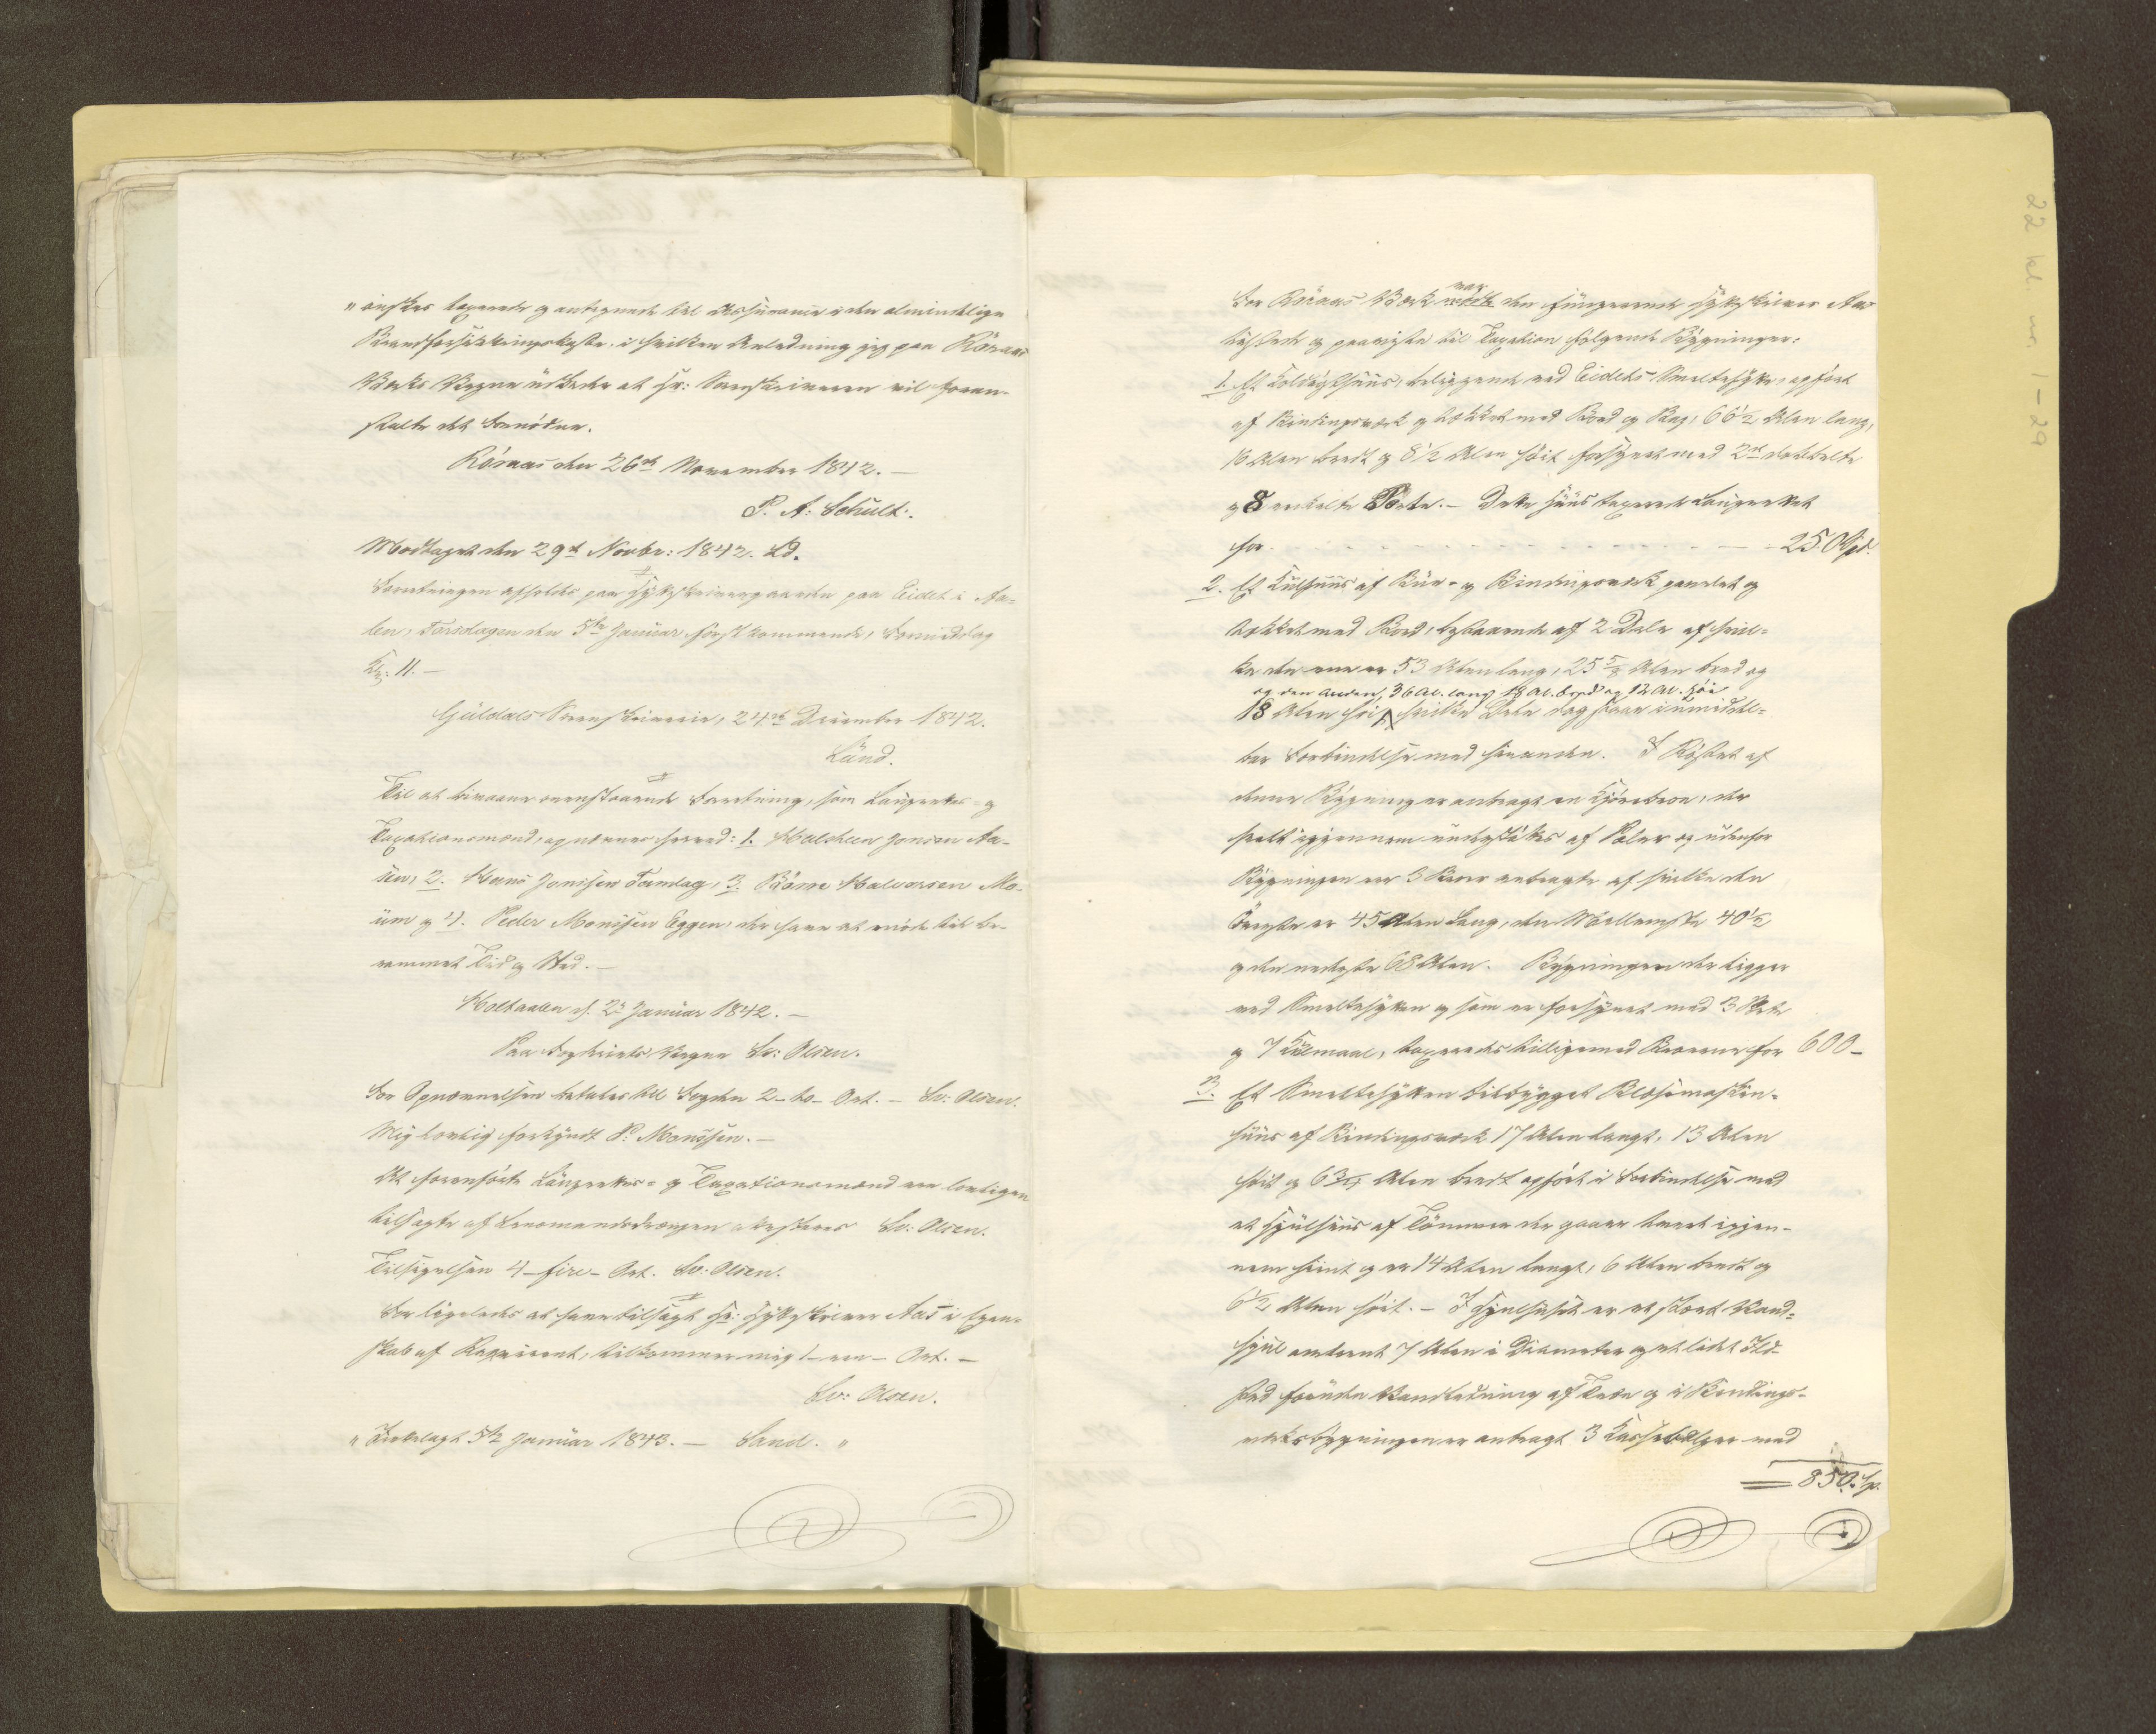 "ønskes taxerede og antegnede til Assurance i den almindelige
Brandforsikkringskasse, i hvilken Anledning jeg paa Röraas
Værks Vegne udbeder at Hr: Sorenskriveren vil foran-
stalte det Fornödne.
Röraas den 26de November 1842. —
P. A: Schult:.
Modtaget den 29de Novbr: 1842. Ld.
Forretningen afholdes paa Hytteskrivergaarden paa Eidet i Aa-
len, Torsdagen den 5te Januar förstkommende, Formiddag
Kl: 11. —
Guldals Sorenskriverie, 24de December 1842.
Lund.
Til at bivaane ovenstaaende Forretning, som Laugrettes- og
Taxationsmænd, opnævnes herved: 1. Halsteen Jonsen Aa-
sen, 2. Hans Jonsen Tamlag, 3. Baare Halvorsen Mo-
um og 4. Peder Monsen Eggen, der have at møde til be-
rammet Tid og Sted. —
Holtaalen d. 2n Januar 1842. —
Paa Fogderiets Vegne Sv: Olsen.
For Opnævnelsen betales til Fogden 2 - to - Ort. — Sv: Olsen.
Mig lovlig forkyndt P: Monsen. —
At foranførte Laugrettes- og Taxationsmænd ere lovligen
tilsagte af Lensmandsdrengen attesteres Sv: Olsen.
Tilsigelsen 4 - fire - Ort. Sv: Olsen.
For ligeledes at have tilsagt Hr: Hytteskriver Aas i Egen-
skab af Reqvirent, tilkommer mig 1 - een - Ort. —
Sv: Olsen.
"Fremlagt 5te Januar 1843. — Lund. "
For Röraas Værk var den fungerende Hytteskriver Aas
tilstede og paaviste til Taxation følgende Bygninger:
1. Et beliggende ved Eidets Smeltehytte, opført
af Bindingsværk og tækket med Bord og Bag, 66½ Alen lang,
16 Alen bredt og 8½ Alen høit forsynet med 2de dobbelte
og 8 enkelte Porte. — Dette Huus taxerede Laugrettet
for - - - - - - - - 250 Spd.
2. Et Kulhuus af Buur- og Bindingsværk panelet og
tækket med Bord, bestaaende af 2 Dele af hvil-
ke den ene er 53 Alen lang, 25 5/8 Alen bred og
og den anden, 36 Al. lang 18 Al. bred og 12 Al. høi
18 Alen høi, hvilke Dele dog staae i umiddel-
bar Forbindelse med hinanden. I Röstet af
denne Bygning er anbragt en Kjørebroe, der
heelt igjennem understøttes af Peler og udenfor
Bygningen ere 3 Broer anbragte af hvilke den
Øverste er 45 Alen lang, den Mellemste 40½
og den nederste 68 Alen. Bygningen der ligger
ved Smeltehytten og som er forsynet med 3 Porte
og 7 Kulmaal, taxeredes tilligemed Broerne for 600 —
3. Et Smeltehytten tilbygget Blæsemaskin-
huus af Bindingsværk 17 Alen langt, 13 Alen
høit og 6¾ Alen bredt opført i Forbindelse med
et Hjulhuus af Tømmer der gaaer tvært igjen-
nem hiint og er 14 Alen langt, 6 Alen bredt og
6½ Alen høit. — I Hjulhuset er et stort Vand-
hjul omtrent 7 Alen i Diameter og et lidet Ild-
sted foruden Vandledning af Træe og i Bindings-
verksbygningen er anbragt 3 Kassebælger med
= 850. Sp.
22 kl nr 1 - 29